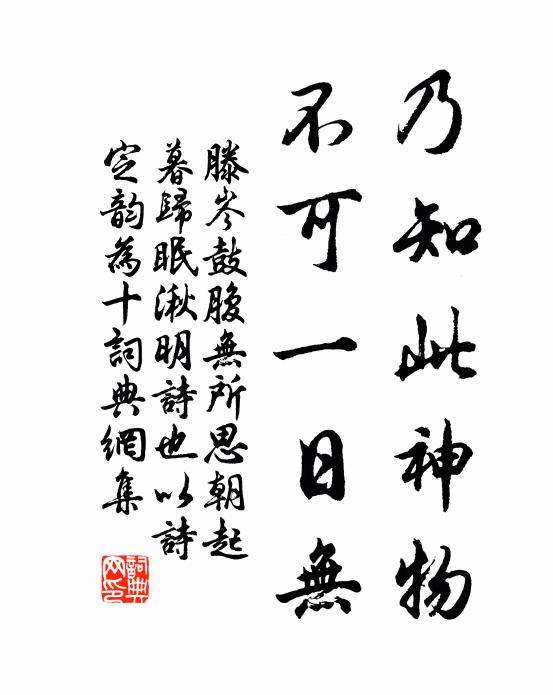 乃知此神物
不可一日無
滕岑鼓腹無所思朝起
暮歸眠湫明詩也以詩
定韵為十詞典網集
詞典
网印